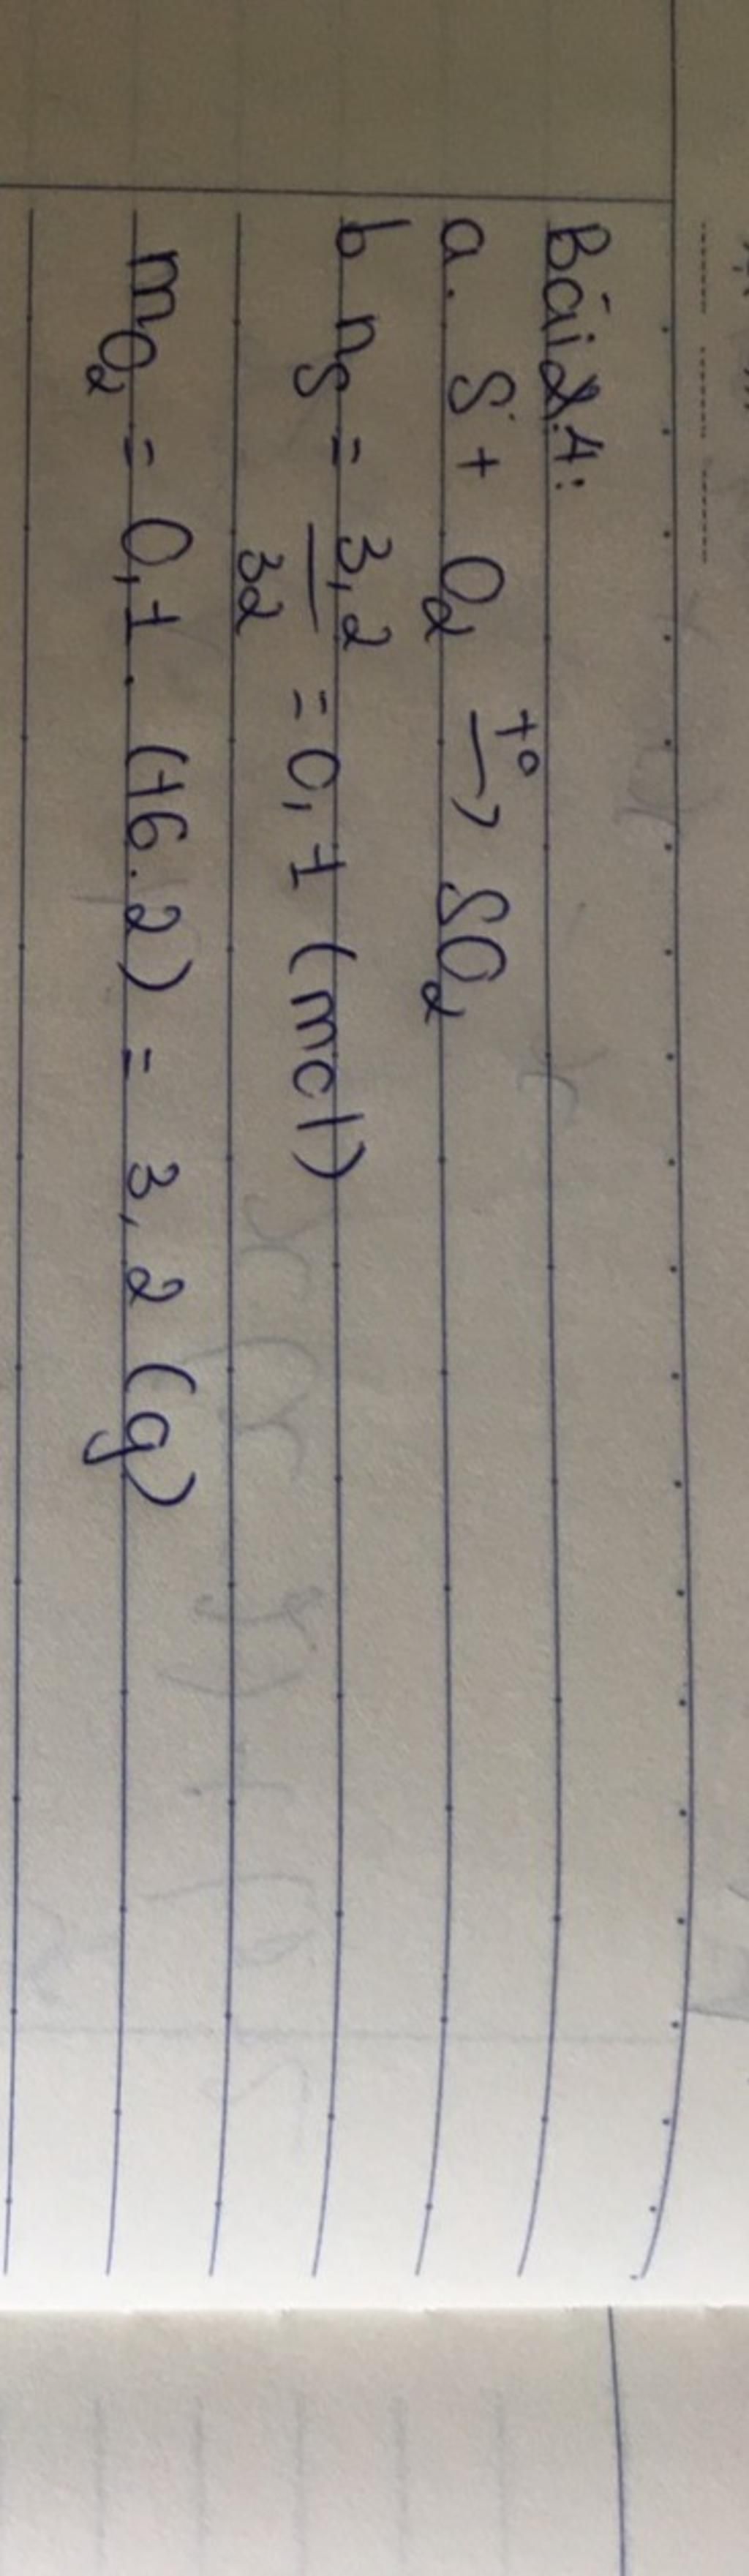 Bài 2.4:
a. S + O₂ t° → SO₂
b n_S = 3,2/32 = 0,1 (mol)
m_O₂ = 0,1 . (16.2) = 3,2 (g)